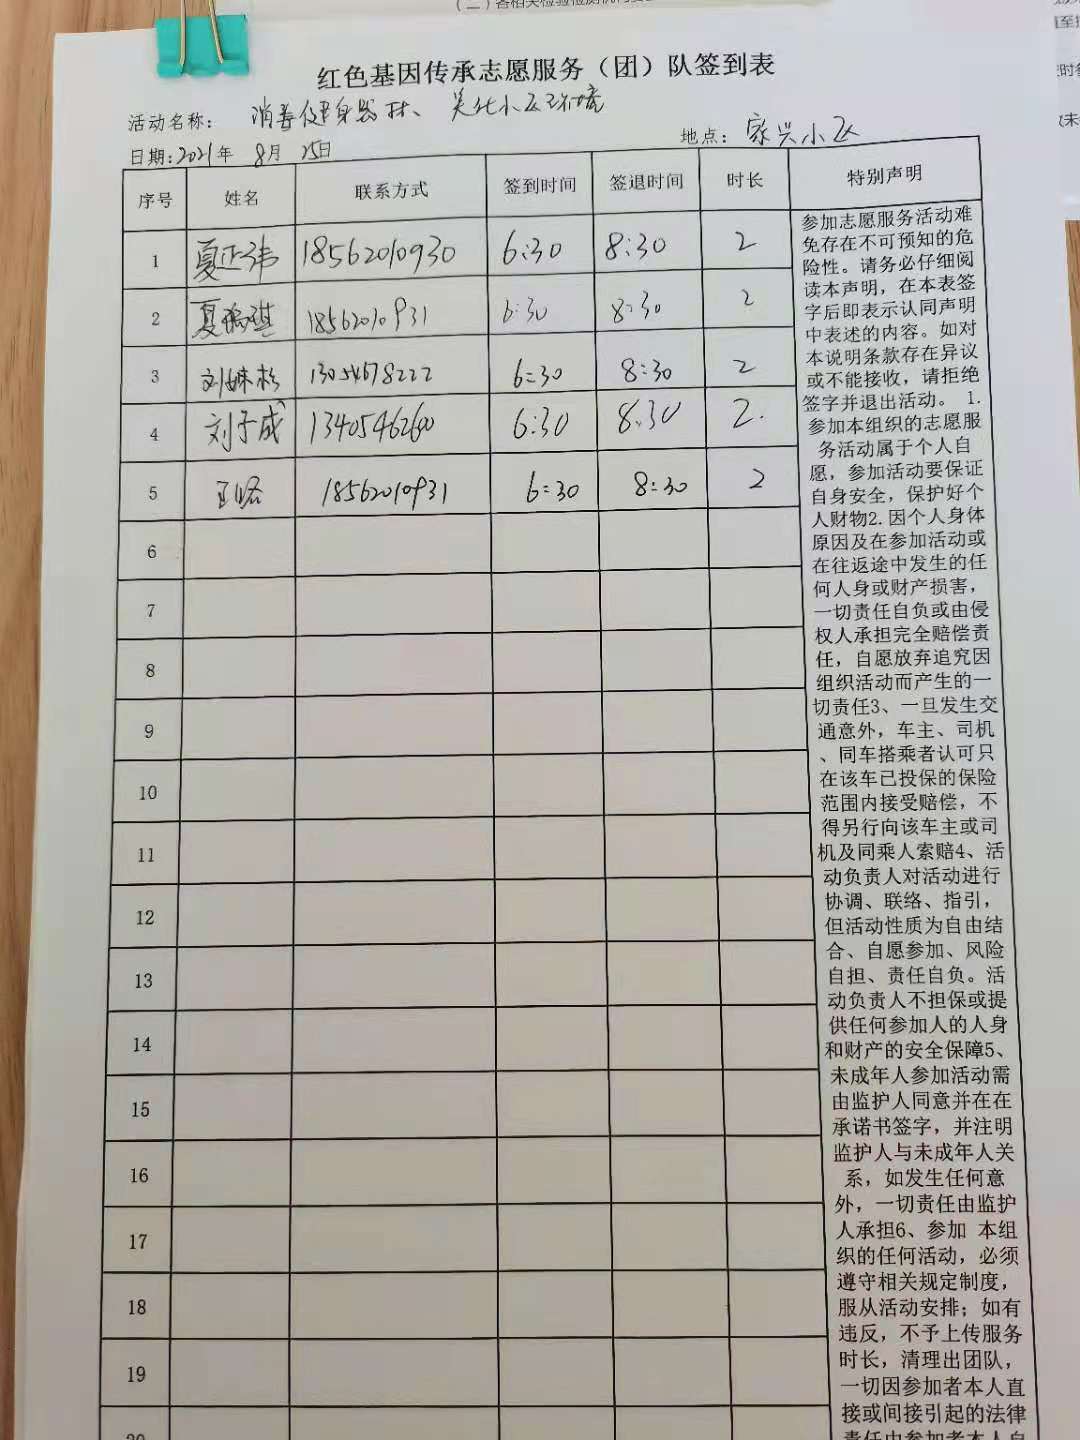 红色基因传承志愿服务（团）队签到表
活动名称： 消毒健身器材、美化小区环境
日期:2021年 8月 25日
地点： 家兴小区
序号 姓名 联系方式 签到时间 签退时间 时长 特别声明
1 夏正玮 18562010930 6:30 8:30 2
2 夏瑞琪 18562010931 6:30 8:30 2
3 刘姝杉 13054678222 6:30 8:30 2
4 刘子成 13405462600 6:30 8:30 2.
5 18562010931 6:30 8:30 2
6
7
8
9
10
11
12
13
14
15
16
17
18
19
20
参加志愿服务活动难
免存在不可预知的危
险性。请务必仔细阅
读本声明，在本表签
字后即表示认同声明
中表述的内容。如对
本说明条款存在异议
或不能接收，请拒绝
签字并退出活动。 1.
参加本组织的志愿服
务活动属于个人自
愿，参加活动要保证
自身安全，保护好个
人财物2.因个人身体
原因及在参加活动或
在往返途中发生的任
何人身或财产损害，
一切责任自负或由侵
权人承担完全赔偿责
任，自愿放弃追究因
组织活动而产生的一
切责任3、一旦发生交
通意外，车主、司机
、同车搭乘者认可只
在该车已投保的保险
范围内接受赔偿，不
得另行向该车主或司
机及同乘人索赔4、活
动负责人对活动进行
协调、联络、指引，
但活动性质为自由结
合、自愿参加、风险
自担、责任自负。活
动负责人不担保或提
供任何参加人的人身
和财产的安全保障5、
未成年人参加活动需
由监护人同意并在在
承诺书签字，并注明
监护人与未成年人关
系，如发生任何意
外，一切责任由监护
人承担6、参加 本组
织的任何活动，必须
遵守相关规定制度，
服从活动安排；如有
违反，不予上传服务
时长，清理出团队，
一切因参加者本人直
接或间接引起的法律
责任由参加者本人自